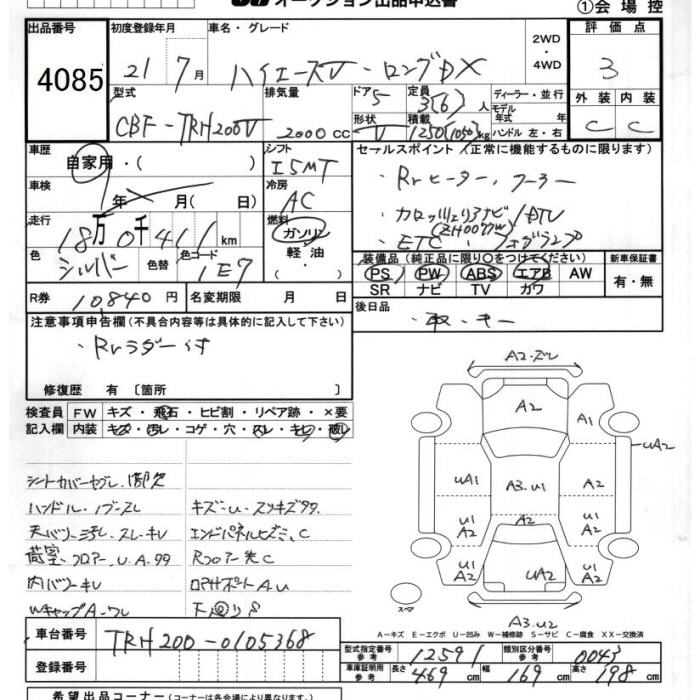 オークション出品申込書
①会場控
出品番号
4085
初度登録年月
21 7月
車名・グレード
ハイエースV・ロングDX
2WD
・
4WD
評価点
3
型式
CBF-TRH200V
排気量
2000cc
ドア 5
定員 3(6)人
形状 V
積載 1250(1050)kg
ディーラー・並行
モデル年式 年式
ハンドル 左・右
外装 内装
C C
車歴
自家用・( )
シフト
I5MT
セールスポイント(正常に機能するものに限ります)
車検
年 月( 日)
冷房
AC
・Rrヒーター、クーラー
走行
18万0千411km
燃料
ガソリン
軽油
・カロッツェリアナビ/DTV
(ZH0077W)
・ETC・フォグランプ
色
シルバー
色替
色コード
1E7
装備品(純正品に限り○をつけてください)
PS PW ABS エアB AW
SR ナビ TV カワ
新車保証書
有・無
R券
10840円
名変期限 月 日
後日品
・取・キー
注意事項申告欄(不具合内容等は具体的に記入して下さい)
・Rrラダー付
修復歴 有〔箇所 〕
検査員 FW キズ・飛石・ヒビ割・リペア跡・×要
記入欄 内装 キズ・汚レ・コゲ・穴・スレ・キレ・破レ
ハンドル・ノブスレ
内バリキレ
WキャップA・ワレ
A2・ズレ
A2
A1
UA2
UA1
A3・U1
A2
U1
A2
A2
U1
A2
U1
A2
UA2
U1
A2
スペア
A3・U2
A-キズ E-エクボ U-凹み W-補修跡 S-サビ C-腐食 XX-交換済
車台番号
TRH200-0105368
型式指定番号 参考
12591
類別区分番号 参考
0043
登録番号
車庫証明用 参考
長さ 469cm 幅 169cm 高さ 198cm
希望出品コーナー(コーナーは各会場により異なります)